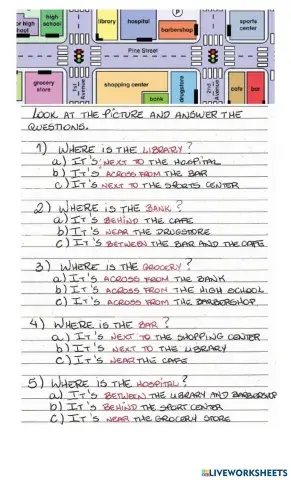 or high
school
high
school
library
hospital
P
barbershop
sports
center
Pine Street
grocery
store
1st
Avenue
shopping center
bank
drugstore
2nd
Avenue
cafe
bar
LOOK AT THE PICTURE AND ANSWER THE
QUESTIONS.
1) WHERE IS THE LIBRARY?
a) IT'S NEXT TO THE HOSPITAL
b) IT'S ACROSS FROM THE BAR
c) IT'S NEXT TO THE SPORTS CENTER
2) WHERE IS THE BANK?
a) IT'S BEHIND THE CAFE
b) IT'S NEAR THE DRUGSTORE
c) IT'S BETWEEN THE BAR AND THE CAFE
3) WHERE IS THE GROCERY?
a) IT'S ACROSS FROM THE BANK
b) IT'S ACROSS FROM THE HIGH SCHOOL
c) IT'S ACROSS FROM THE BARBERSHOP
4) WHERE IS THE BAR?
a) IT'S NEXT TO THE SHOPPING CENTER
b) IT'S NEXT TO THE LIBRARY
c) IT'S NEAR THE CAFE
5) WHERE IS THE HOSPITAL?
a) IT'S BETWEEN THE LIBRARY AND BARBERSHOP
b) IT'S BEHIND THE SPORT CENTER
c) IT'S NEAR THE GROCERY STORE
LIVEWORKSHEETS